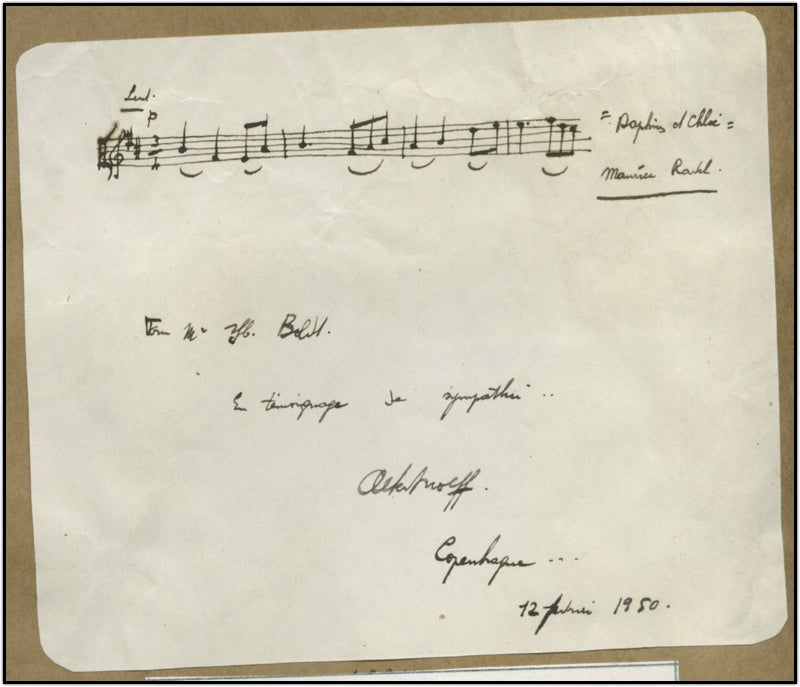 Lent.
p
= Daphnis et Chloé =
Maurice Ravel.
Pour Mr
En témoignage de sympathie ..
Albert Wolff.
Copenhague ...
12 février 1950.